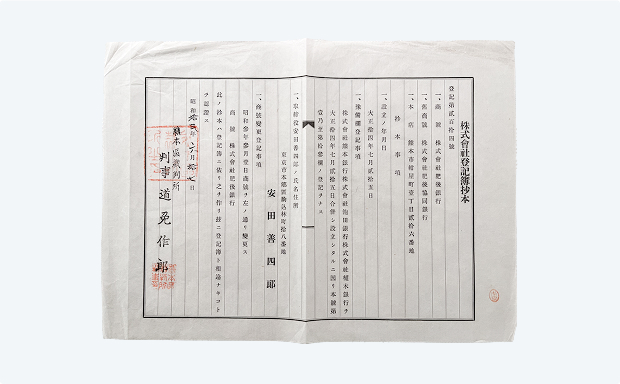 株式會社登記簿抄本
登記第貳百拾四號
一、商號 株式會社肥後銀行
一、舊商號 株式會社肥後協同銀行
一、本店 熊本市紺屋町壹丁目貳拾六番地
抄本事項
一、設立ノ年月日
大正拾四年七月貳拾五日
一、豫備欄登記事項
株式會社熊本銀行株式會社飽田銀行株式會社植木銀行ヲ
大正拾四年七月貳拾五日合併シ設立シタルニ因リ本欄第
壹乃至第拾參欄ノ登記ヲナス
一、取締役安田善四郎ノ氏名住所
東京市本郷區駒込林町拾八番地
安田善四郎
一、商號變更登記事項
昭和參年參月壹日商號ヲ左ノ通リ變更ス
商號 株式會社肥後銀行
此ノ抄本ハ登記簿ニ依リ之ヲ作リ茲ニ登記簿ト相違ナキコト
ヲ認證ス
昭和拾 年六月拾七日
熊本區裁判所
判事 道免作郎